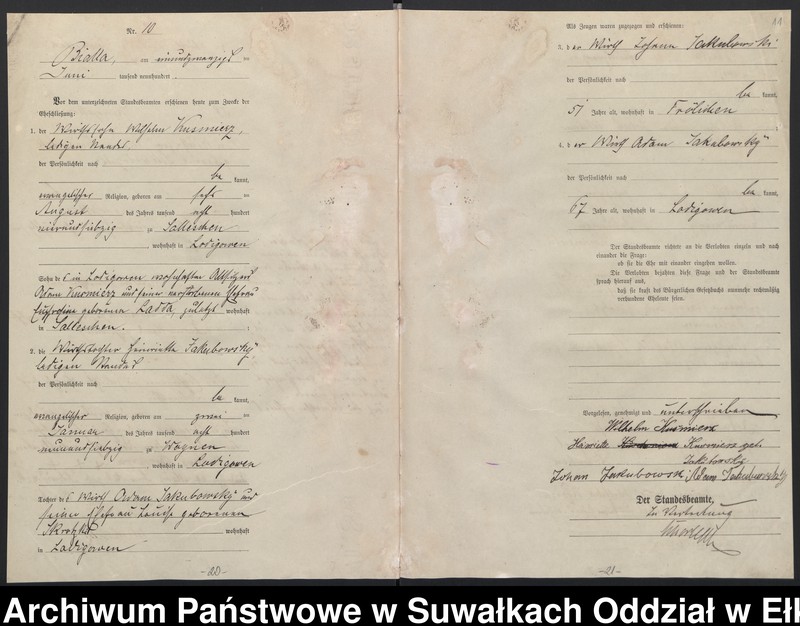 Nr. 10
Bialla, am einundzwanzigsten
Juni tausend neunhundert.
Vor dem unterzeichneten Standesbeamten erschienen heute zum Zwecke der
Eheschließung:
1. der Wirthssohn Wilhelm Kusmierz,
ledigen Standes
der Persönlichkeit nach
be kannt,
evangelischer Religion, geboren am
August des Jahres tausend acht hundert
vierundsiebzig zu Salleschen
, wohnhaft in Lodigowen
Sohn des in Lodigowen wohnhaften Altsitzers
Adam Kusmierz und seiner verstorbenen Ehefrau
geborenen Ladda, zuletzt wohnhaft
in Salleschen.
2. die Wirthstochter Heinriette Jakubowsky
ledigen Standes
der Persönlichkeit nach
be kannt,
evangelischer Religion, geboren am zwei ten
Januar des Jahres tausend acht hundert
neunundsiebzig zu Woznen
, wohnhaft in Lodigowen
Tochter des Wirth Adam Jakubowsky und
seiner Ehefrau Louise geborenen
Skrotzki wohnhaft
in Lodigowen
-20-
11
Als Zeugen waren zugezogen und erschienen:
3. der Wirth Johann Jakubowski
der Persönlichkeit nach
be kannt,
51 Jahre alt, wohnhaft in Frölichen
4. der Wirth Adam Jakubowsky
der Persönlichkeit nach
be kannt,
67 Jahre alt, wohnhaft in Lodigowen
Der Standesbeamte richtete an die Verlobten einzeln und nach
einander die Frage:
ob sie die Ehe mit einander eingehen wollen.
Die Verlobten bejahten diese Frage und der Standesbeamte
sprach hierauf aus,
daß sie kraft des Bürgerlichen Gesetzbuchs nunmehr rechtmäßig
verbundene Eheleute seien.
Vorgelesen, genehmigt und unterschrieben
Wilhelm Kusmierz
Hinriette Kusmierz geb.
Jakubowsky
Johan Jakubowsk Adam Jakubowsky
Der Standesbeamte,
In Vertretung
-21-
Archiwum Państwowe w Suwałkach Oddział w Ełk